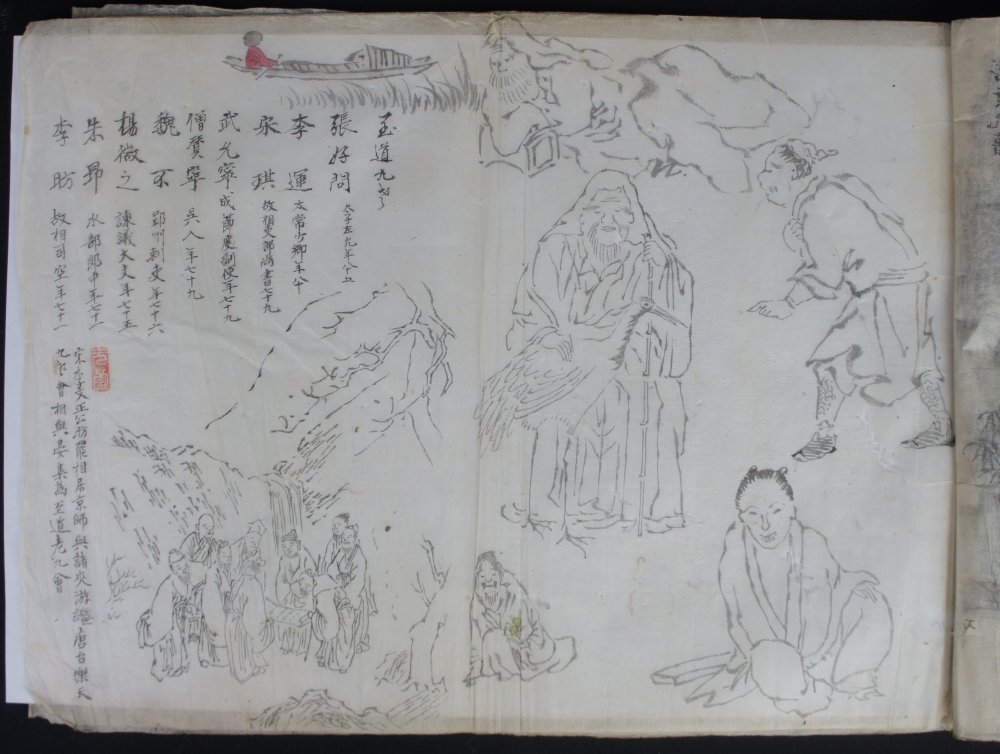 至道九老
張好問 太子左 年八十五
李運 太常少卿年八十
宋琪 故相吏部尚書七十九
武允寧成 節度副使年七十九
僧贊寧 吳人 年七十九
魏丕 郢州刺史年七十六
楊徽之 諫議大夫年七十五
朱昂 水部郎中年七十一
李昉 故相司空年七十一
宋李文正公昉罷相居京師與諸 游繼唐白樂天
九老會相與晏集為至道老九會